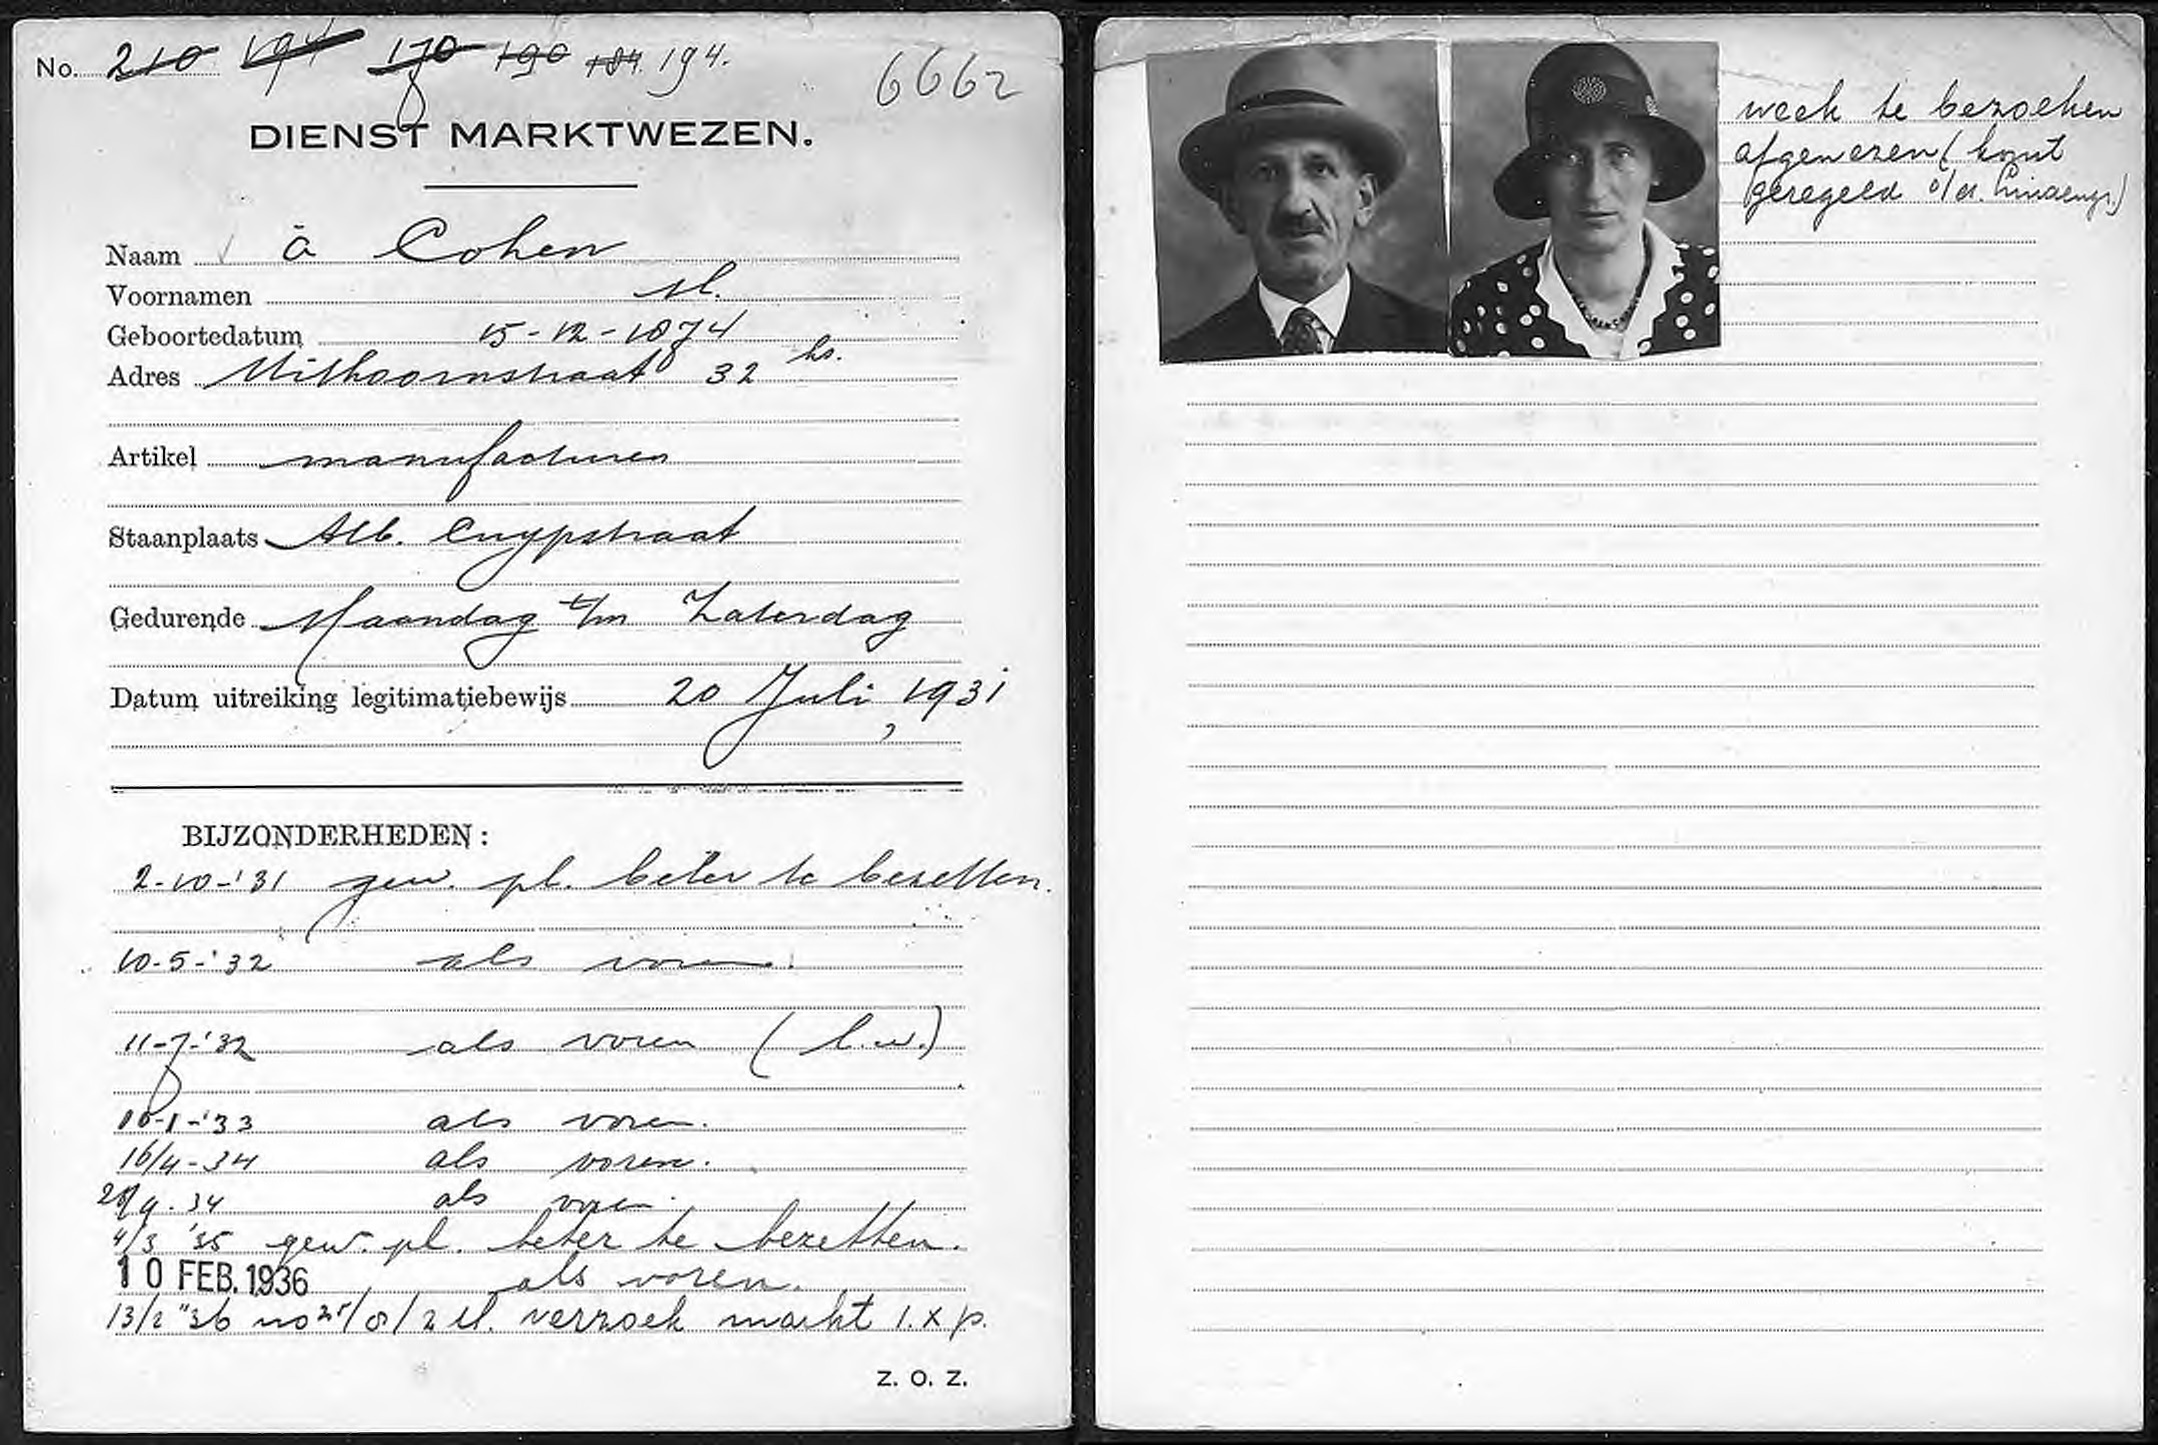 No. 210 194 170 190 184 194.
6662
DIENST MARKTWEZEN.
Naam à Cohen
Voornamen M.
Geboortedatum 15-12-1874
Adres Uithoornstraat 32 hs.
Artikel manufacturen
Staanplaats Alb. Cuypstraat
Gedurende Maandag t/m Zaterdag
Datum uitreiking legitimatiebewijs 20 Juli, 1931
BIJZONDERHEDEN:
2-10-'31 gew. pl. beter te bezetten.
10-5-'32 als voren.
11-7-'32 als voren (l.w.)
10-1-'33 als voren.
16/4-34 als voren.
9.34 als voren.
4/3 '35 gew. pl. beter te bezetten.
10 FEB. 1936 als voren.
13/2 "36 no 25/8/2 M. verzoek markt 1. x p.
Z. O. Z.
week te bezoeken
afgewezen (komt
geregeld o/d. Lindengr.)